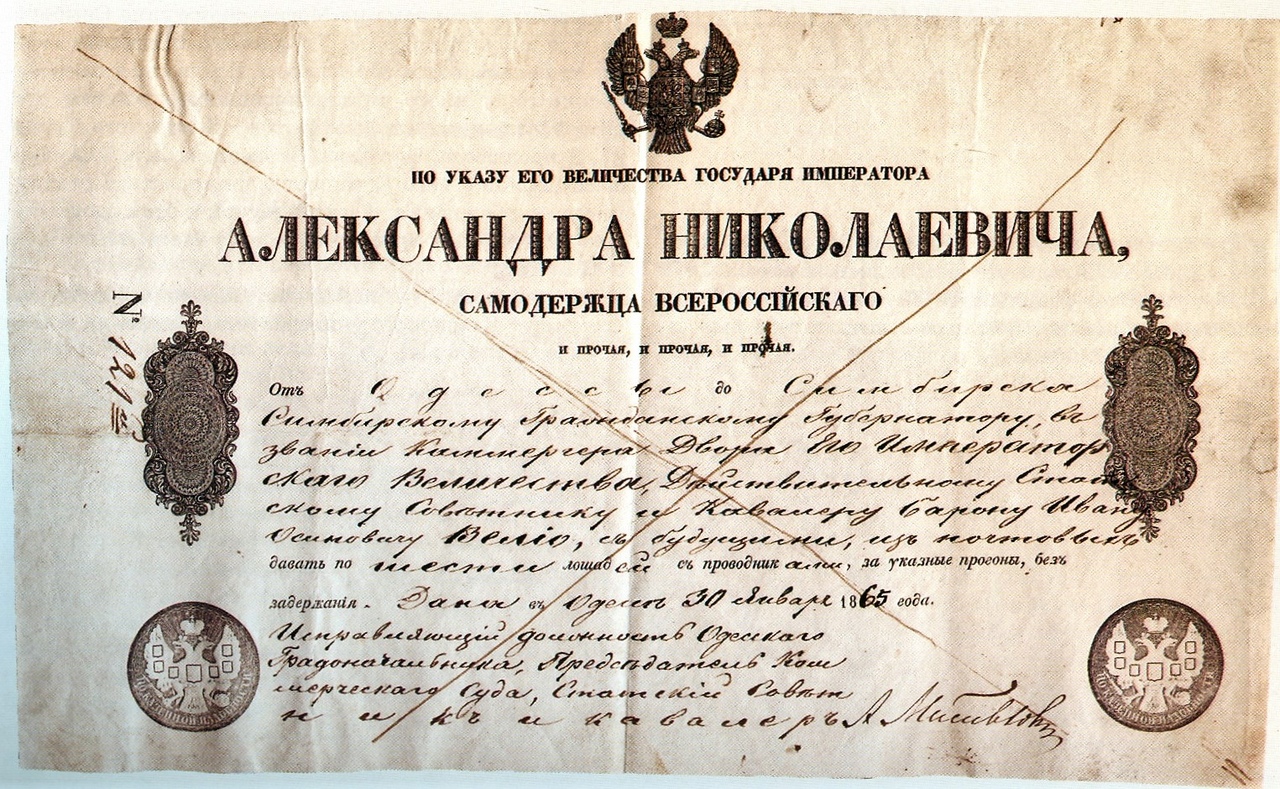 ПО УКАЗУ ЕГО ВЕЛИЧЕСТВА ГОСУДАРЯ ИМПЕРАТОРА
АЛЕКСАНДРА НИКОЛАЕВИЧА,
САМОДЕРЖЦА ВСЕРОССІЙСКАГО
И ПРОЧАЯ, И ПРОЧАЯ, И ПРОЧАЯ.
№ 121
Отъ Одессы до Симбирска
Симбирскому Гражданскому Губернатору, въ
званіи Каммергера Двора Его Император
скаго Величества, Действительному Стат
скому Советнику и Кавалеру Барону Ивану
Осиповичу Веліо, съ будущими, изъ почтовыхъ
давать по шести лошадей съ проводниками, за указные прогоны, безъ
задержанія. Дана въ Одессе 30 Января 1865 года.
Исправляющій должность Одесскаго
Градоначальника, Председатель Ком
мерческаго Суда, Статскій Совет
никъ и кавалеръ А.